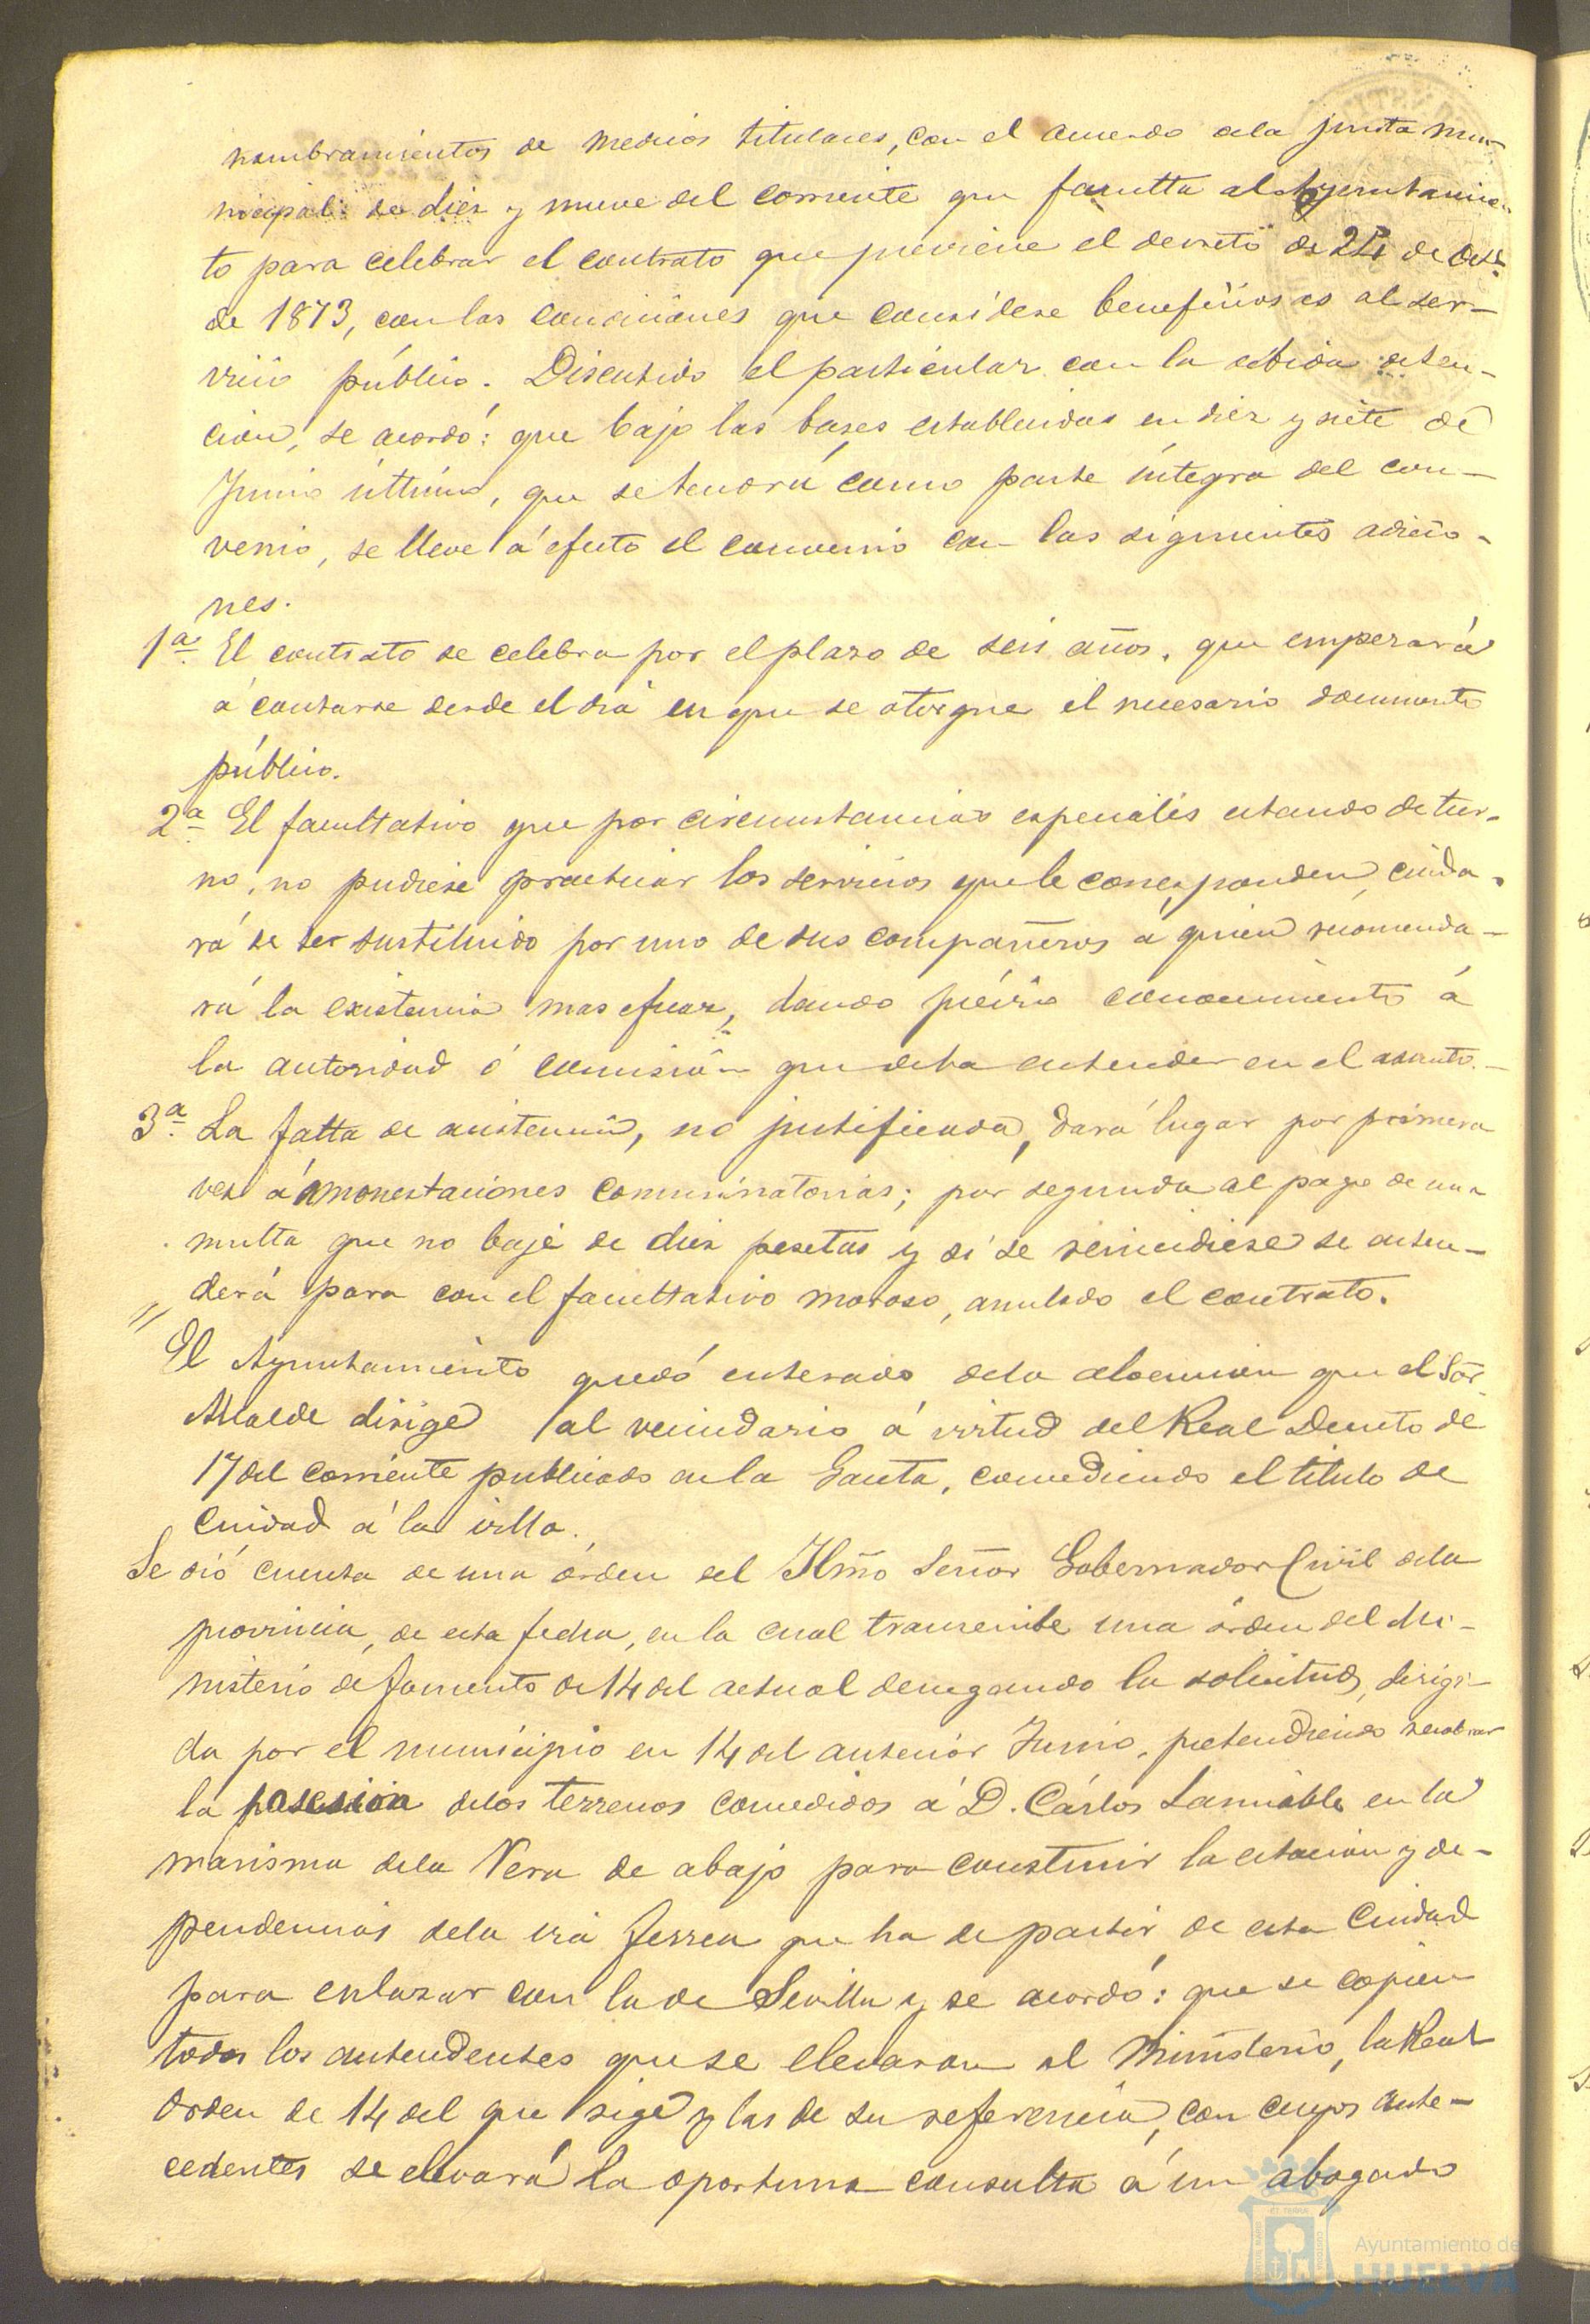 nombramientos de Medicos titulares, con el acuerdo dela junta mu-
nicipal de diez y nueve del corriente que faculta al Ayuntamien-
to para celebrar el contrato que previene el decreto de 24 de Octe
de 1873, con las condiciones que considere beneficiosas al ser-
vicio público. Discutido el particular con la debida deten-
cion, se acordó: que bajo las bases establecidas en diez y siete de
Junio último, que se tendrá como parte íntegra del con-
venio, se lleve á efecto el convenio con las siguientes adicio-
nes.
1ª El contrato se celebra por el plazo de seis años, que empezará
á contarse desde el dia en que se otorgue el necesario documento
público.
2ª El facultativo que por circunstancias especiales estando de tur-
no, no pudiese practicar los servicios que le corresponden, cuida-
rá de ser sustituido por uno de sus compañeros á quien recomenda-
rá la existencia mas eficaz, dando prévio conocimiento á
la autoridad ó comision que deba entender en el asunto.-
3ª La falta de asistencia, no justificada, dará lugar por primera
vez á amonestaciones comminatorias; por segunda al pago de una
multa que no baje de diez pesetas y si se reincidiese se enten-
derá para con el facultativo moroso, anulado el contrato.
" El Ayuntamiento quedó enterado dela alocucion que el Sor
Alcalde dirige al vecindario á virtud del Real Decreto de
17 del corriente publicado en la Gaceta, concediendo el titulo de
Ciudad á la villa.
Se dió cuenta de una órden del Ilmo Señor Gobernador Civil dela
provincia, de esta fecha, en la cual transcribe una órden del Mi-
nisterio de fomento de 14 del actual denegando la solicitud, dirigi-
da por el municipio en 14 del anterior Junio, pretendiendo recobrar
la posesion delos terrenos concedidos á D. Cárlos Lamiable en la
marisma dela Vera de abajo para construir la estacion y de-
pendencias dela via ferrea que ha de partir de esta Ciudad
para enlazar con la de Sevilla y se acordó: que se copien
todos los antendentes que se elevaron al Ministerio, la Real
órden de 14 del que rige y las de su referencia, con cuyos ante-
cedentes se elevará la oportuna consulta á un abogado
Ayuntamiento de
HUELVA